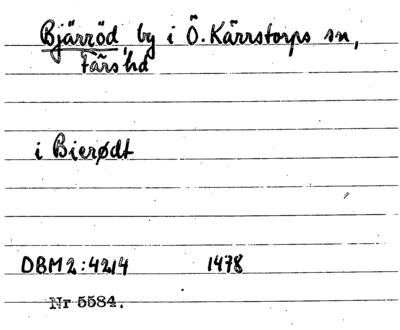 Bjärröd, by i Ö. Kärrstorps sn,
Färs hd
i Bierødt
DBM2:4214 1478
Nr 5584.